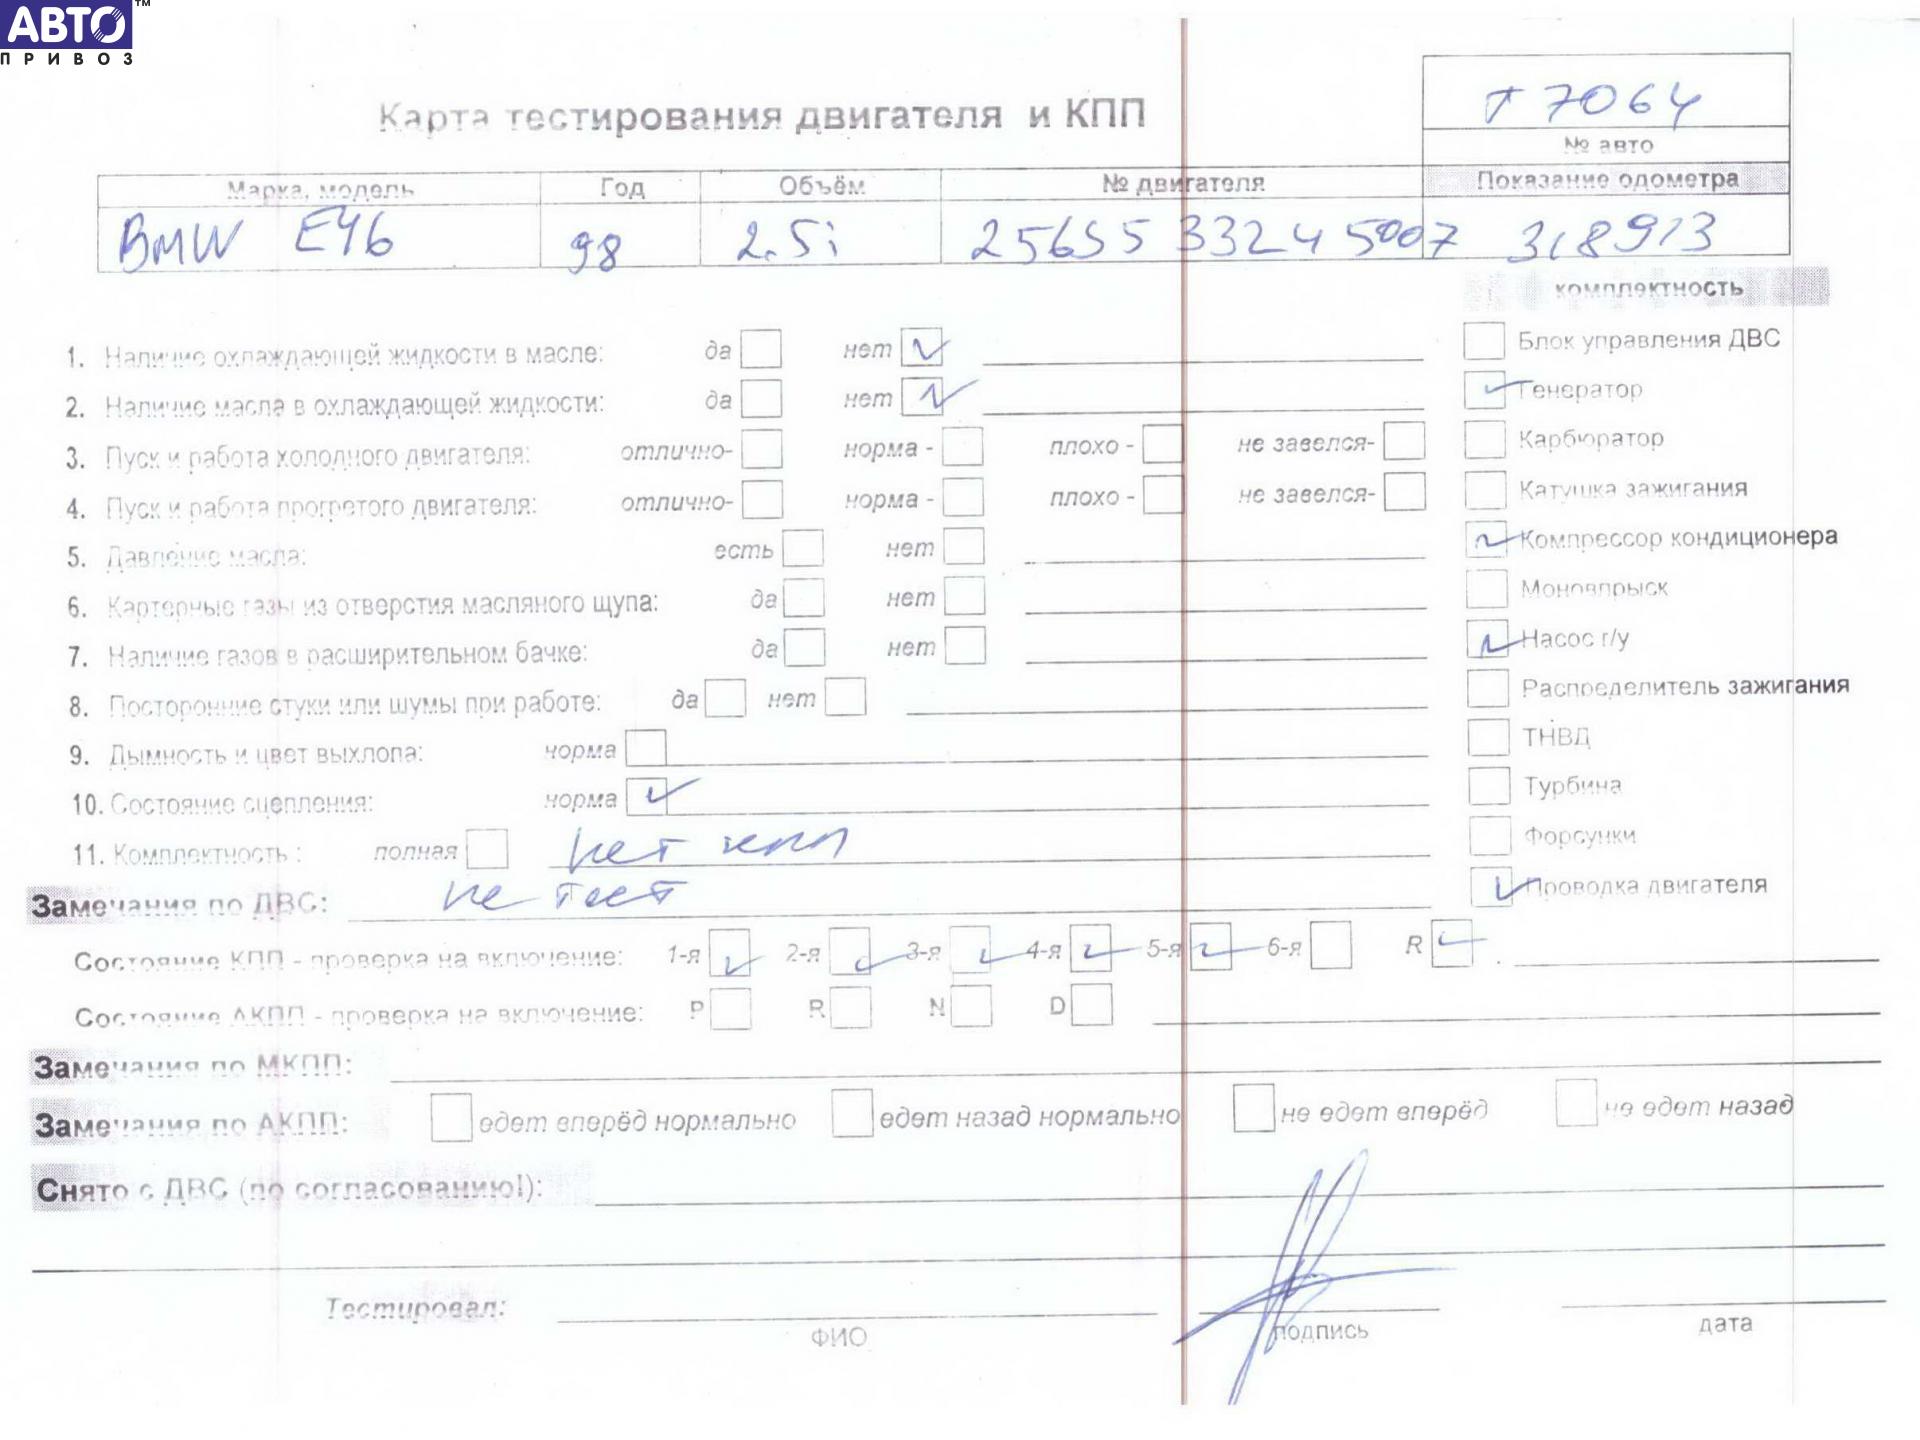 АВТО™
ПРИВОЗ
Т 7064
Карта тестирования двигателя и КПП
№ авто
Марка, модель Год Объём № двигателя Показание одометра
BMW E46 98 2.5i 256S5 33245007 318913
комплектность
1. Наличие охлаждающей жидкости в масле: да нет Блок управления ДВС
2. Наличие масла в охлаждающей жидкости: да нет Генератор
3. Пуск и работа холодного двигателя: отлично- норма - плохо - не завелся- Карбюратор
4. Пуск и работа прогретого двигателя: отлично- норма - плохо - не завелся- Катушка зажигания
5. Давление масла: есть нет Компрессор кондиционера
6. Картерные газы из отверстия масляного щупа: да нет Моновпрыск
7. Наличие газов в расширительном бачке: да нет Насос г/у
8. Посторонние стуки или шумы при работе: да нет Распределитель зажигания
9. Дымность и цвет выхлопа: норма ТНВД
10. Состояние сцепления: норма Турбина
11. Комплектность : полная нет кпп Форсунки
Замечания по ДВС: не тест Проводка двигателя
Состояние КПП - проверка на включение: 1-я 2-я 3-я 4-я 5-я 6-я R
Состояние АКПП - проверка на включение: P R N D
Замечания по МКПП:
Замечания по АКПП: едет вперёд нормально едет назад нормально не едет вперёд не едет назад
Снято с ДВС (по согласованию!):
Тестировал:
ФИО подпись дата